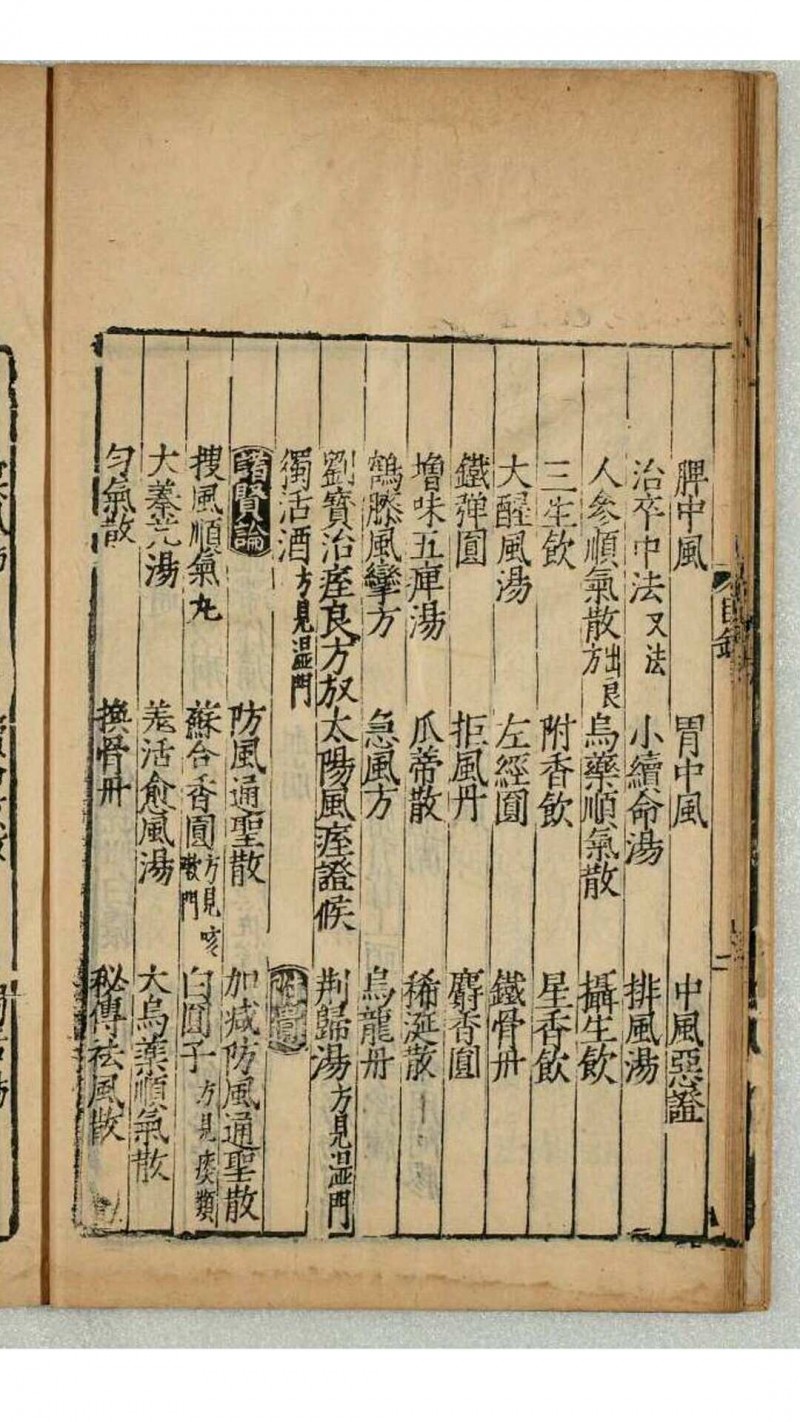 脾中風 胃中風 中風惡證
治卒中法 又法 小續命湯 排風湯
人參順氣散 出良方 烏藥順氣散 攝生飲
三生飲 附香飲 星香飲
大醒風湯 左經圓 鐵骨丹
鐵彈圓 拒風丹 麝香圓
増味五痺湯 瓜蒂散 稀涎散
鶴膝風攣方 急風方 烏龍丹
劉寶治痓良方放 太陽風痓證候 荆歸湯 方見溫門
獨活酒 方見溫門
諸賢論 防風通聖散 加減防風通聖散
搜風順氣丸 蘇合香圓 方見咳嗽門 白圓子 方見痰類
大秦艽湯 羗活愈風湯 大烏藥順氣散
勻氣散 換骨丹 秘傳祛風散
目錄
二